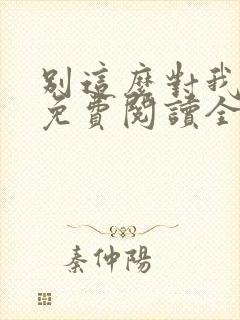 別這麼對我
免費閱讀全
秦仲陽